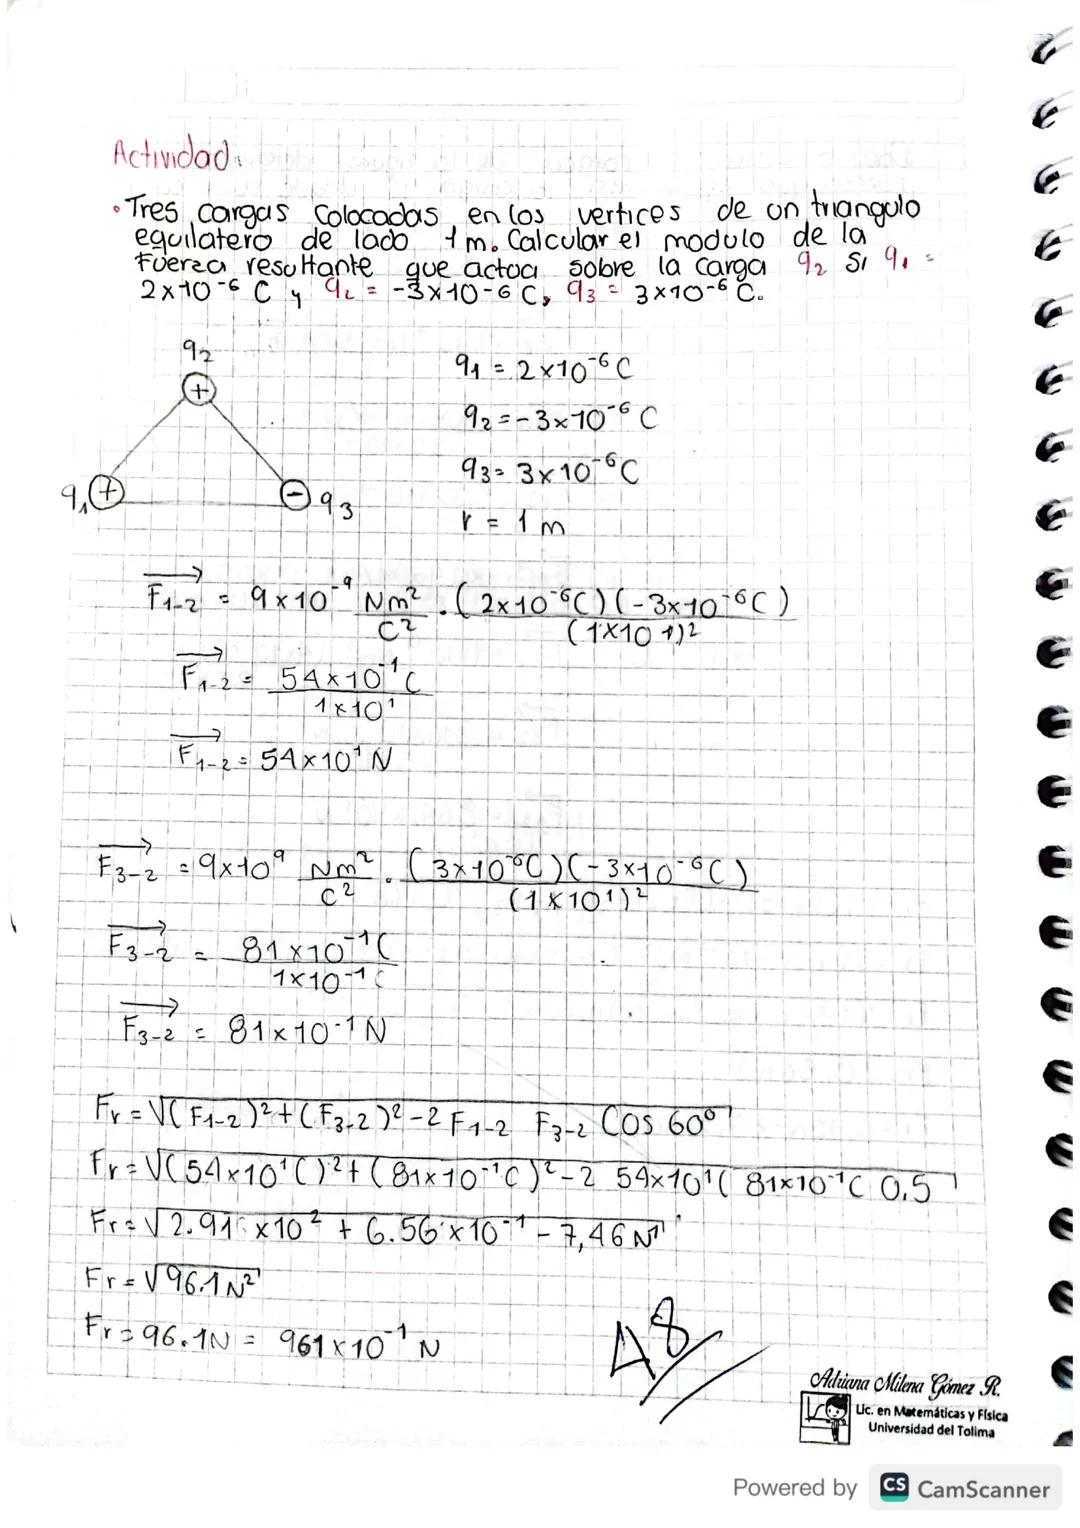 Actividad.
• Tres cargas colocadas en los vertices de un triangulo
equilatero de lado 1m. Calcular el modulo de la
fuerza resultante que actua sobre la carga q₂ si q₁ =
2x10-6 C y q₂ = -3x10-6 C, q₃ = 3x10-6 C.
q₂
+
q₁ +
- q₃
q₁ = 2x10⁻⁶ C
q₂ = -3x10⁻⁶ C
q₃ = 3x10⁻⁶ C
r = 1 m
F₁₋₂ = 9x10⁻⁹ Nm²/C² . (2x10⁻⁶C)(-3x10⁻⁶C) / (1x10 1)²
F₁₋₂ = 54x10⁻¹C / 1x10¹
F₁₋₂ = 54x10¹ N
F₃₋₂ = 9x10⁹ Nm²/C² . (3x10⁻⁶C)(-3x10⁻⁶C) / (1x10¹)²
F₃₋₂ = 81x10⁻¹C / 1x10⁻¹C
F₃₋₂ = 81x10-1 N
Fr = √(F₁₋₂)² + (F₃₋₂)² - 2 F₁₋₂ F₃₋₂ Cos 60°
Fr = √(54x10¹C)² + (81x10⁻¹C)² - 2 54x10¹( 81x10⁻¹C 0,5
Fr = √2.916 x10² + 6.56 x10⁻¹ - 7,46 N
Fr = √96.1N²
Fr = 96.1N = 961x10⁻¹ N
48
Adriana Milena Gómez R.
Lic. en Matemáticas y Física
Universidad del Tolima
Powered by CS CamScanner